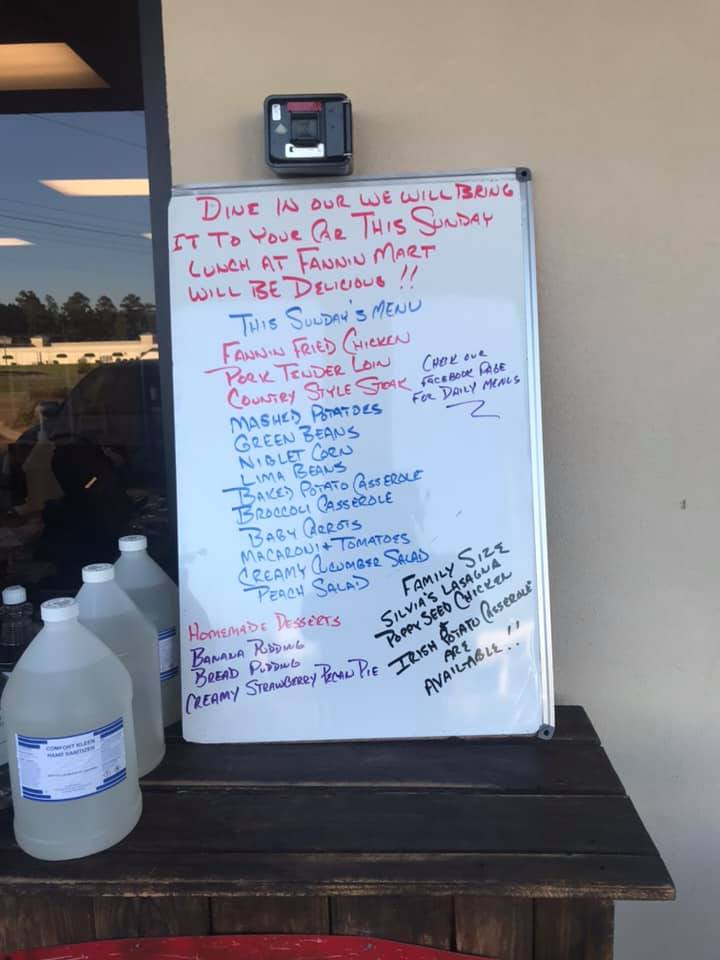 DINE IN OUR WE WILL BRING
IT TO YOUR CAR THIS SUNDAY
LUNCH AT FANNIN MART
WILL BE DELICIOUS !!
THIS SUNDAY'S MENU
FANNIN FRIED CHICKEN
PORK TENDER LOIN
COUNTRY STYLE STEAK
CHECK OUR
FACEBOOK PAGE
FOR DAILY MENUS
MASHED POTATOES
GREEN BEANS
NIBLET CORN
LIMA BEANS
BAKED POTATO CASSEROLE
BROCCOLI CASSEROLE
BABY CARROTS
MACARONI + TOMATOES
CREAMY CUCUMBER SALAD
PEACH SALAD
FAMILY SIZE
SILVIA'S LASAGNA
POPPY SEED CHICKEN
&
IRISH POTATO CASSEROLE
ARE
AVAILABLE !!
HOMEMADE DESSERTS
BANANA PUDDING
BREAD PUDDING
CREAMY STRAWBERRY PECAN PIE
COMFORT KLEEN
HAND SANITIZER